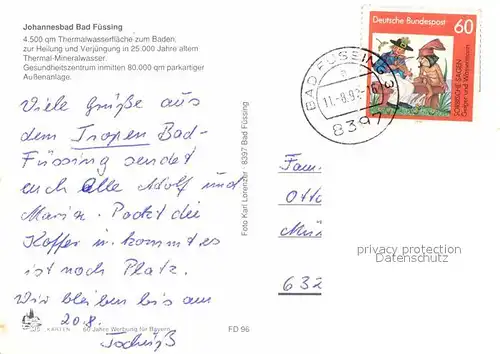 Johannesbad Bad Füssing
4.500 qm Thermalwasserfläche zum Baden,
zur Heilung und Verjüngung in 25.000 Jahre altem
Thermal-Mineralwasser.
Gesundheitszentrum inmitten 80.000 qm parkartiger
Außenanlage.
Viele Grüße aus
dem Tropen Bad-
Füssing sendet
euch alle Adolf und
Maria. Packt die
Koffer u. kommt es
ist noch Platz.
Wir bleiben bis am
20.8.
KARTEN 60 Jahre Werbung für Bayern
FD 96
Foto Karl Lorenzer · 8397 Bad Füssing
Deutsche Bundespost 60
SORBISCHE SAGEN
Geiger und Wassermann
BAD FÜSSING 3
11.-8.92-16
8397
Fam.
Otto
Mün
632
privacy protection
Datenschutz